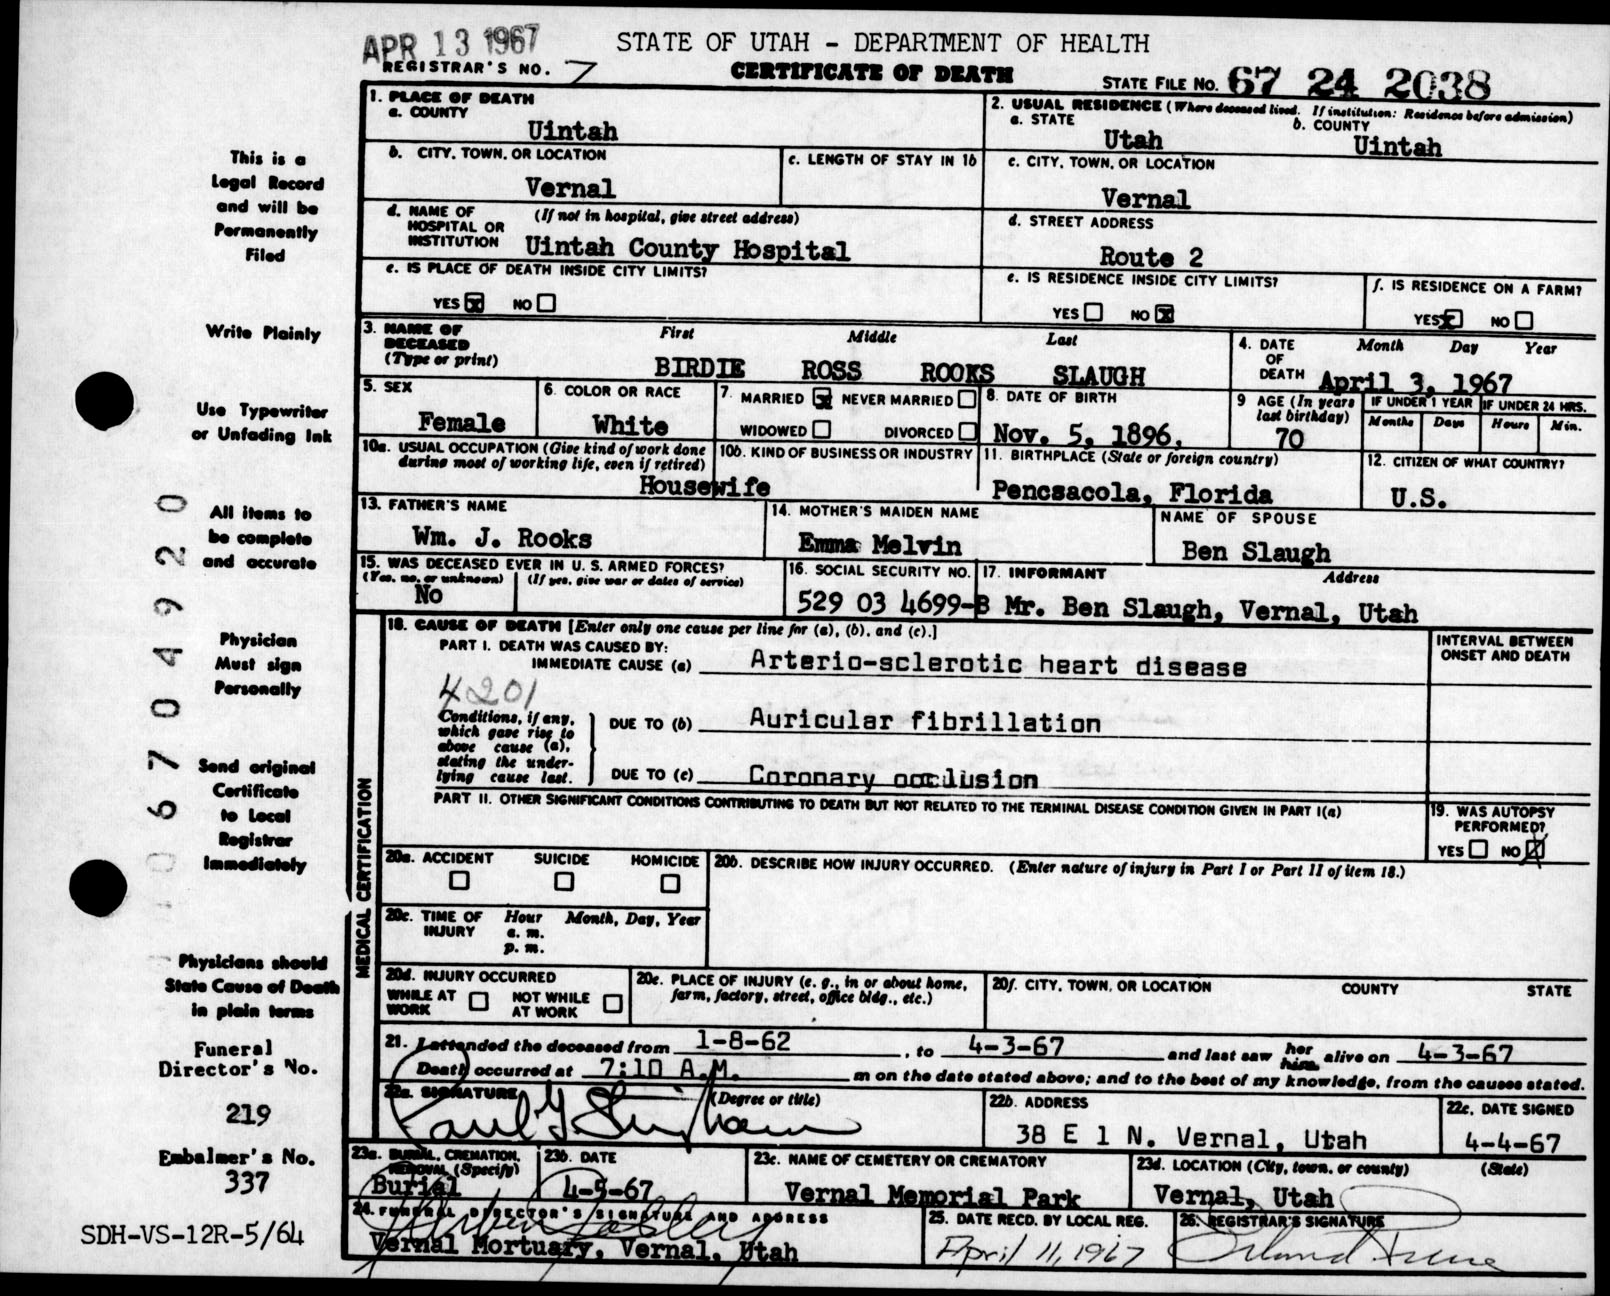 APR 13 1967
STATE OF UTAH - DEPARTMENT OF HEALTH
REGISTRAR'S NO. 7
CERTIFICATE OF DEATH
STATE FILE NO. 67 24 2038
This is a
Legal Record
and will be
Permanently
Filed
Write Plainly
Use Typewriter
or Unfading Ink
All items to
be complete
and accurate
Physician
Must sign
Personally
Send original
Certificate
to Local
Registrar
Immediately
Physicians should
State Cause of Death
in plain terms
Funeral
Director's No.
219
Embalmer's No.
337
SDH-VS-12R-5/64
0 6 7 0 4 9 2 0
1. PLACE OF DEATH
a. COUNTY
Uintah
2. USUAL RESIDENCE (Where deceased lived. If institution: Residence before admission)
a. STATE
Utah
b. COUNTY
Uintah
b. CITY, TOWN, OR LOCATION
Vernal
c. LENGTH OF STAY IN 1b
c. CITY, TOWN, OR LOCATION
Vernal
d. NAME OF HOSPITAL OR INSTITUTION
(If not in hospital, give street address)
Uintah County Hospital
d. STREET ADDRESS
Route 2
e. IS PLACE OF DEATH INSIDE CITY LIMITS?
YES X NO
e. IS RESIDENCE INSIDE CITY LIMITS?
YES NO X
f. IS RESIDENCE ON A FARM?
YES X NO
3. NAME OF DECEASED
(Type or print)
First Middle Last
BIRDIE ROSS ROOKS SLAUGH
4. DATE OF DEATH
Month Day Year
April 3, 1967
5. SEX
Female
6. COLOR OR RACE
White
7. MARRIED X NEVER MARRIED
WIDOWED DIVORCED
8. DATE OF BIRTH
Nov. 5, 1896.
9 AGE (In years last birthday)
70
IF UNDER 1 YEAR IF UNDER 24 HRS.
Months Days Hours Min.
10a. USUAL OCCUPATION (Give kind of work done
during most of working life, even if retired)
10b. KIND OF BUSINESS OR INDUSTRY
Housewife
11. BIRTHPLACE (State or foreign country)
Pencsacola, Florida
12. CITIZEN OF WHAT COUNTRY?
U.S.
13. FATHER'S NAME
Wm. J. Rooks
14. MOTHER'S MAIDEN NAME
Emma Melvin
NAME OF SPOUSE
Ben Slaugh
15. WAS DECEASED EVER IN U. S. ARMED FORCES?
(Yes, no, or unknown) (If yes, give war or dates of service)
No
16. SOCIAL SECURITY NO.
529 03 4699-B
17. INFORMANT Address
Mr. Ben Slaugh, Vernal, Utah
MEDICAL CERTIFICATION
18. CAUSE OF DEATH [Enter only one cause per line for (a), (b), and (c).]
INTERVAL BETWEEN
ONSET AND DEATH
PART I. DEATH WAS CAUSED BY:
IMMEDIATE CAUSE (a) Arterio-sclerotic heart disease
4201
Conditions, if any,
which gave rise to
above cause (a),
stating the under-
lying cause last.
DUE TO (b) Auricular fibrillation
DUE TO (c) Coronary occlusion
PART II. OTHER SIGNIFICANT CONDITIONS CONTRIBUTING TO DEATH BUT NOT RELATED TO THE TERMINAL DISEASE CONDITION GIVEN IN PART I(a)
19. WAS AUTOPSY
PERFORMED?
YES NO X
20a. ACCIDENT SUICIDE HOMICIDE
20b. DESCRIBE HOW INJURY OCCURRED. (Enter nature of injury in Part I or Part II of item 18.)
20c. TIME OF INJURY
Hour Month, Day, Year
a. m.
p. m.
20d. INJURY OCCURRED
WHILE AT WORK NOT WHILE AT WORK
20e. PLACE OF INJURY (e. g., in or about home,
farm, factory, street, office bldg., etc.)
20f. CITY, TOWN, OR LOCATION COUNTY STATE
21. I attended the deceased from 1-8-62, to 4-3-67 and last saw her him alive on 4-3-67
Death occurred at 7:10 A.M. m on the date stated above; and to the best of my knowledge, from the causes stated.
22a. SIGNATURE (Degree or title)
Paul G.
22b. ADDRESS
38 E 1 N. Vernal, Utah
22c. DATE SIGNED
4-4-67
23a. BURIAL, CREMATION,
REMOVAL (Specify)
Burial
23b. DATE
4-5-67
23c. NAME OF CEMETERY OR CREMATORY
Vernal Memorial Park
23d. LOCATION (City, town, or county) (State)
Vernal, Utah
24. FUNERAL DIRECTOR'S SIGNATURE AND ADDRESS
Vernal Mortuary, Vernal, Utah
25. DATE RECD. BY LOCAL REG.
April 11, 1967
26. REGISTRAR'S SIGNATURE